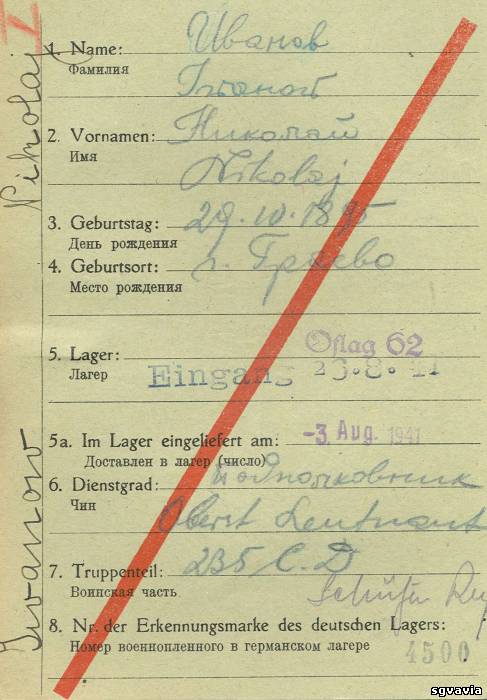 I
Nikolaj
Ivanow
1. Name: Иванов
Фамилия
2. Vornamen: Николай
Имя Nikolaj
3. Geburtstag: 29.10.1895
День рождения
4. Geburtsort: г. Граево
Место рождения
5. Lager: Oflag 62
Лагер Eingang 23.8.41
5a. Im Lager eingeliefert am: -3. Aug. 1941
Доставлен в лагер (число)
6. Dienstgrad: подполковник
Чин Oberst Leutnant
7. Truppenteil: 235 С.D
Воинская часть
8. Nr. der Erkennungsmarke des deutschen Lagers:
Номер военнопленного в германском лагере 4500
sgvavia